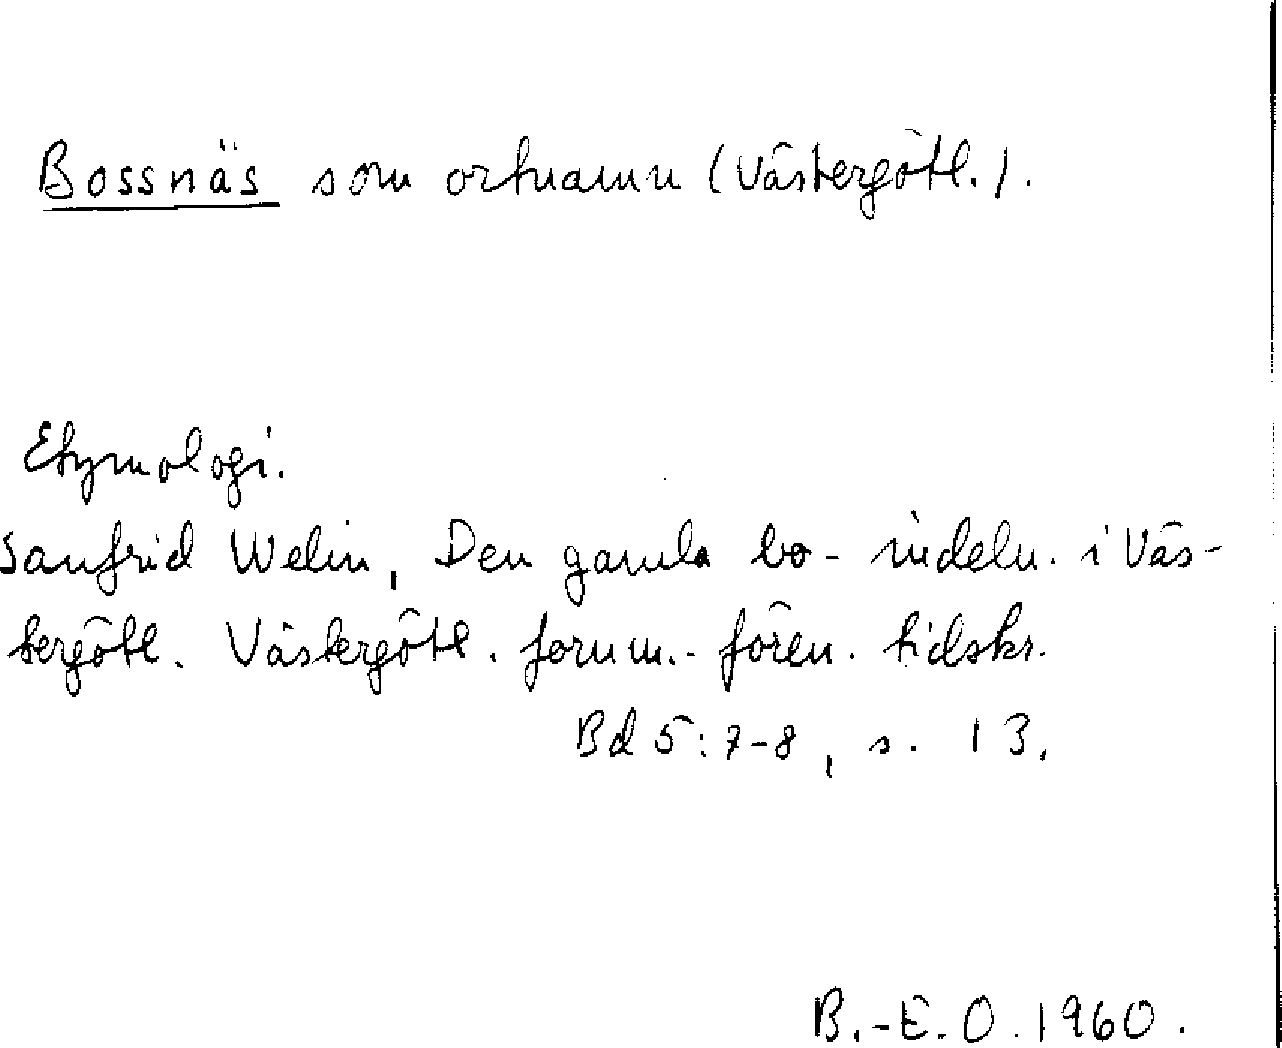 Bossnäs som ortnamn (Västergötl.).
Etymologi.
Sanfrid Welin, Den gamla bo-indeln. i Väs-
tergötl. Västergötl. fornm.-fören. tidskr.
Bd 5:7-8, s. 13.
B.-E.O. 1960.